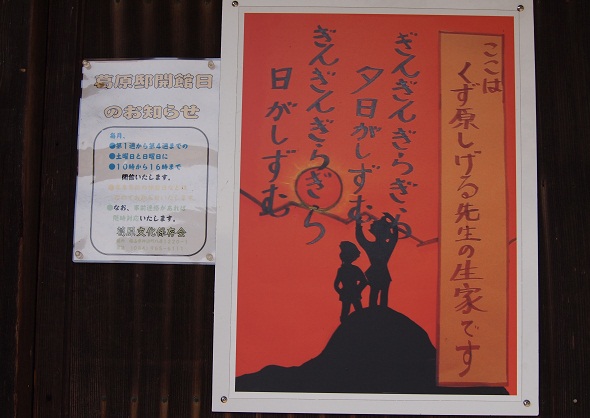 ここは
くず原しげる先生の生家です
ぎんぎんぎらぎら
夕日がしずむ
ぎんぎんぎらぎら
日がしずむ
葛原邸開館日
のお知らせ
毎月、
●第1週から第4週までの
●土曜日と日曜日に
●10時から16時まで
開館いたします。
●なお、事前連絡があれば
随時対応いたします。
葛原文化保存会